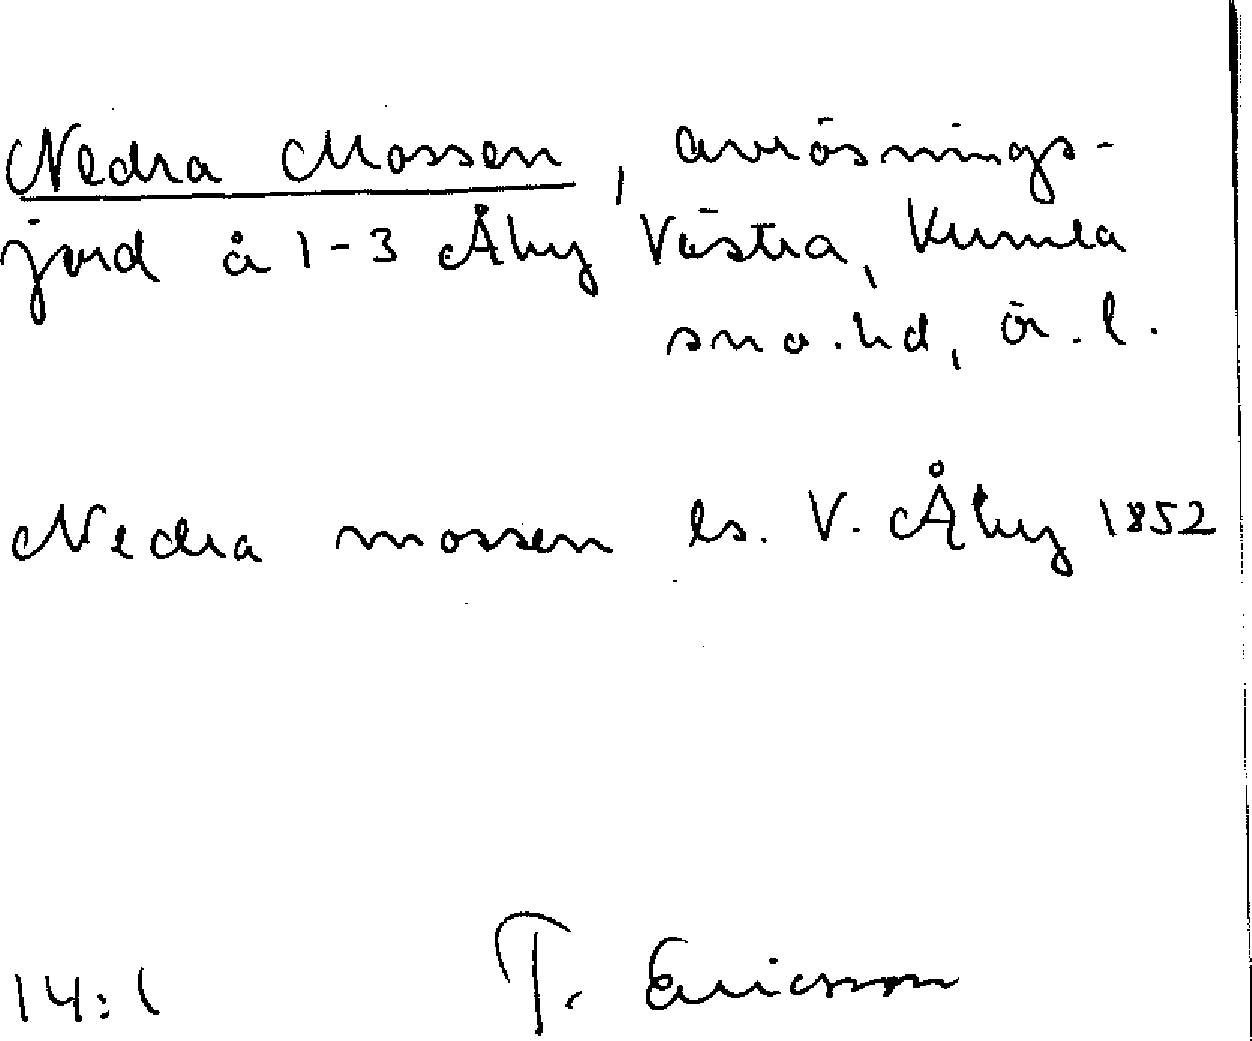 Nedra Mossen, avrösnings-
jord å 1-3 Åby Västra, Kumla
sn o. hd, Ör. l.
Nedra mossen ls. V. Åby 1852
14:1 T. Ericsson